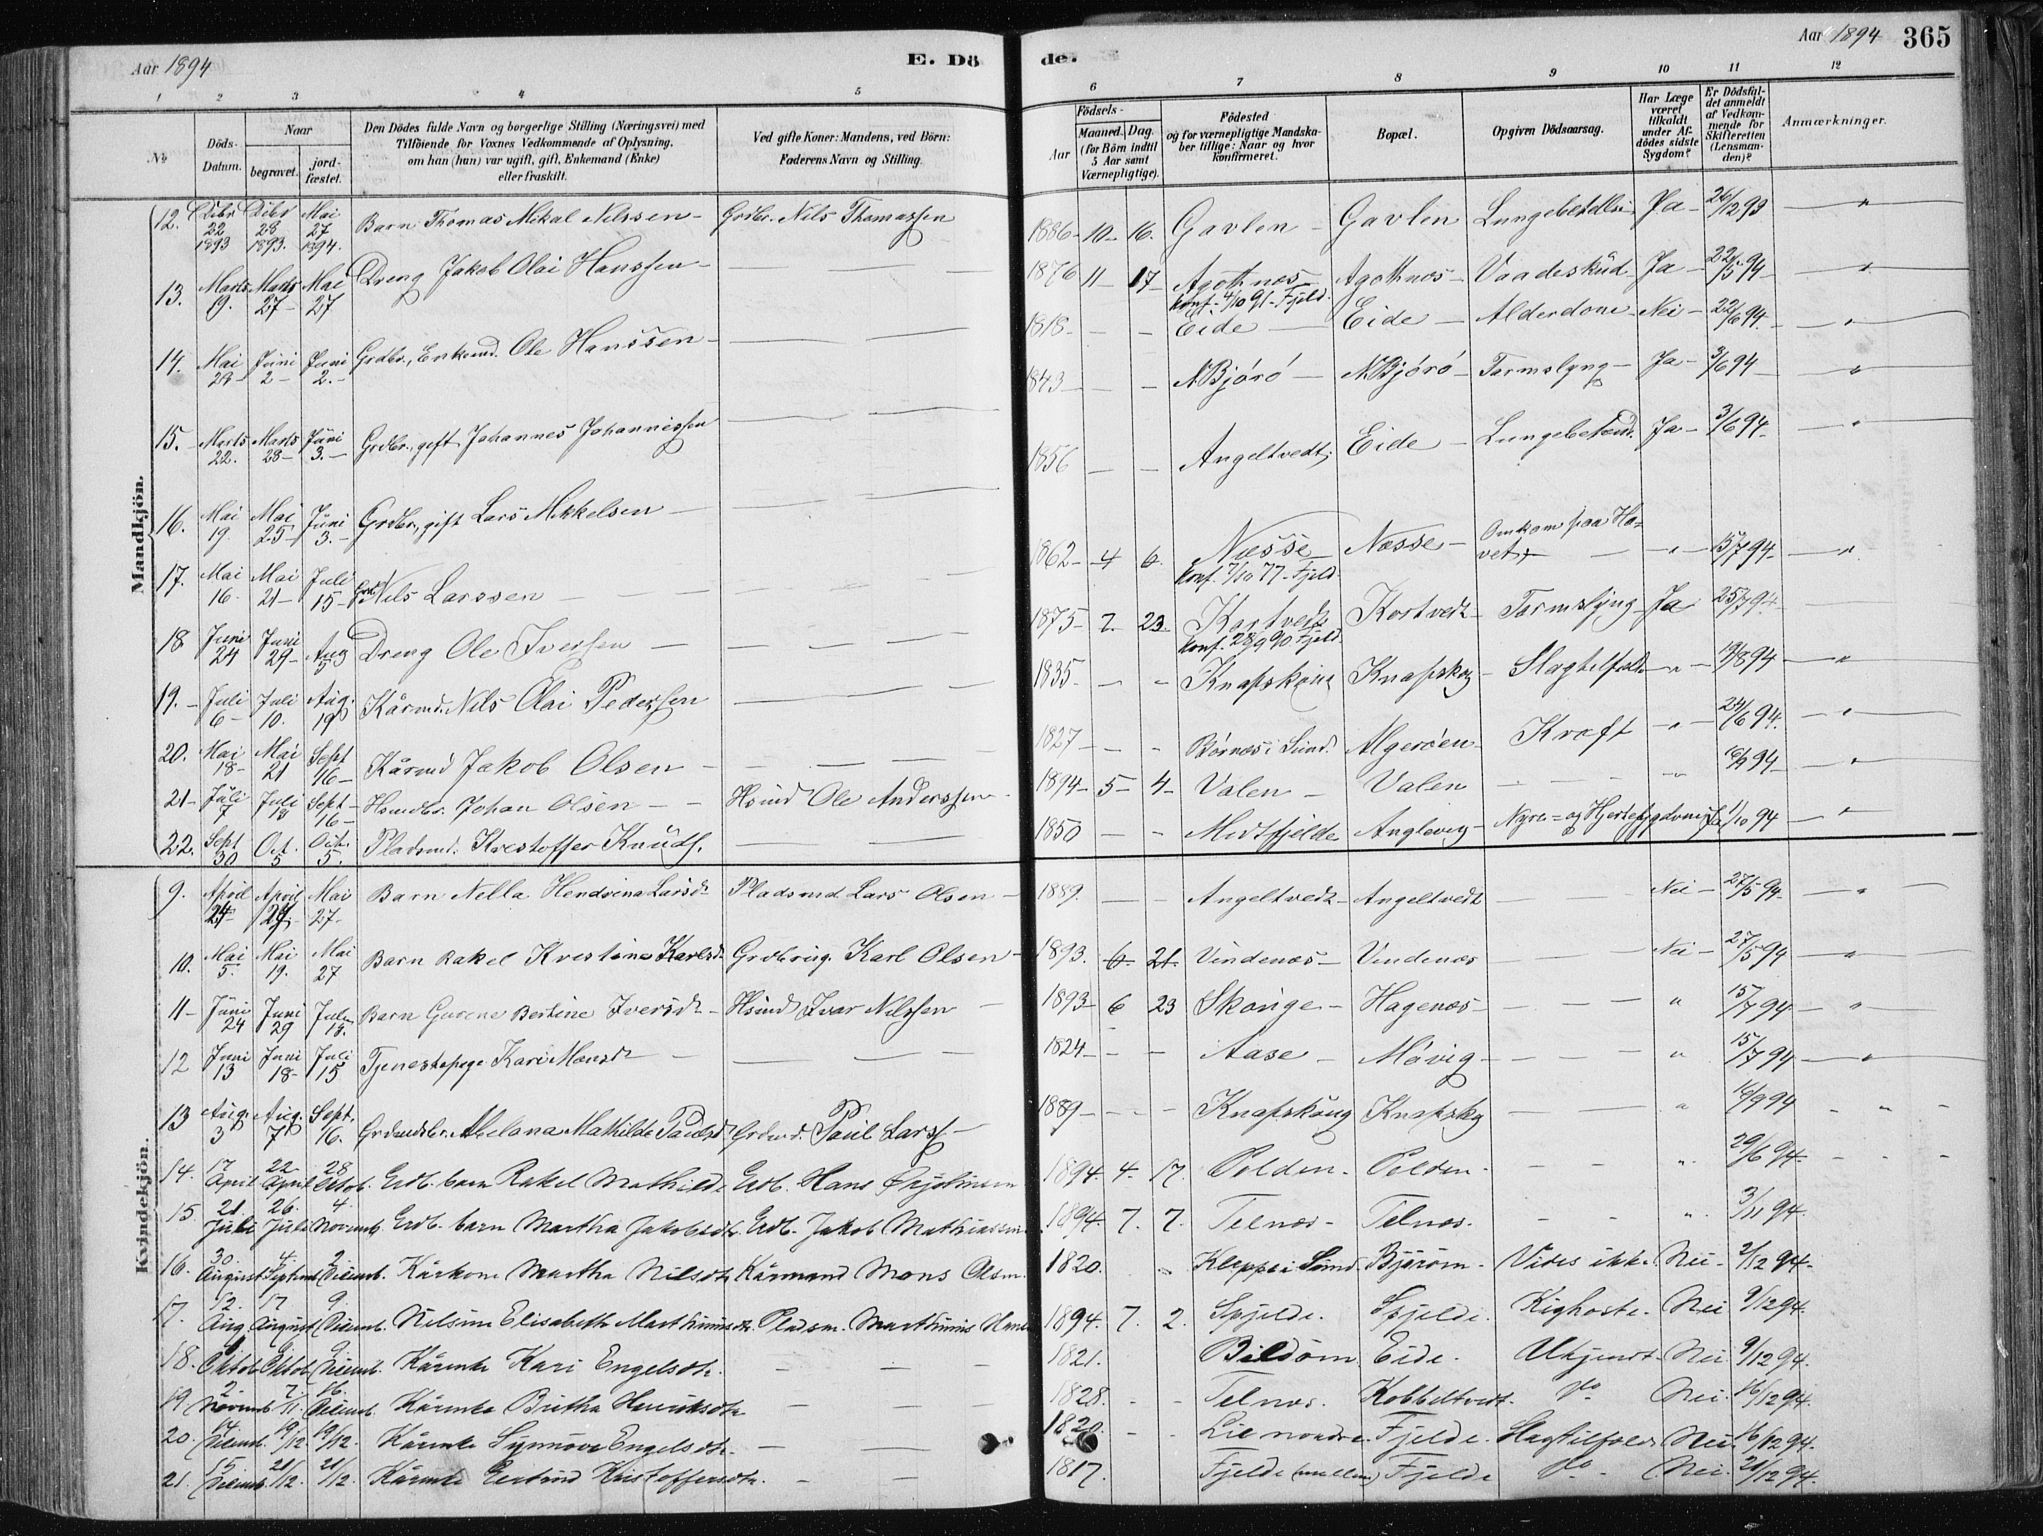 Aar 1894
E. Dö
de.
Aar 1894 365
1 2 3 4 5
6 7 8 9 10 11 12
No
Döds-Datum.
Naar
begravet.
jord-fæstet.
Den Dödes fulde Navn og borgerlige Stilling (Næringsvei) med
Tilföiende for Voxnes Vedkommende af Oplysning,
om han (hun) var ugift, gift, Enkemand (Enke)
eller fraskilt.
Ved gifte Koner: Mandens, ved Börn:
Faderens Navn og Stilling.
Födsels-
Aar
Maaned. Dag.
(for Börn indtil
5 Aar samt
Værnepligtige).
Födested
og for værnepligtige Mandska-
ber tillige: Naar og hvor
konfirmeret.
Bopæl.
Opgiven Dödsaarsag.
Har Læge
været
tilkaldt
under Af-
dödes sidste
Sygdom?
Er Dödsfal-
det anmeldt
af Vedkom-
mende for
Skifteretten
(Lensman-
den)?
Anmærkninger.
Mandkjön.
12. Debr 22 1893 Debr 28 1893. Mai 27 1894. Barn Thomas Mikal Nilssen - Grdbr. Nils Thomassen 1886 - 10 - 16. Gavlen - Gavlen Ja - 26/12 93 "
13. Marts 19. Marts 27 - Mai 27 Dreng Jakob Olai Hanssen - 1876 11 - 17 - Agothnes konf. 4/10 91 - Fjeld. Agothnes - Vaadeskud Ja - 22/5 94 - "
14. Mai 28 - Juni 2 - Juni 2. - Grdbr., Enkemd. Ole Hanssen - 1818 - - - Eide - Eide - Alderdom - Nei - 22/6 94 - "
15. - Marts 22. Marts 28 - Juni 3. - Grdbr., gift Johannes Johannessen 1843 - - - N Bjørø - N Bjørø - Tarmslyng - Ja - 3/6 94 - "
16. Mai 19. Mai 25 - Juni 3. - Grdbr., gift Lars Mikkelsen - 1856 - - Angeltvedt; Eide - Lungebetænd. Ja - 3/6 94 - "
17. Mai 16. Mai 21 - Juli 15 - Nils Larssen - 1862 - 4 6. Næsse konf. 7/10 77 - Fjeld Næsse - Omkom paa Ha-
vet, - " - 15/7 94 - "
18 Juni 24 Juni 29 - Aug 5 Dreng Ole Iversen - 1875 - 7. 23. Kortvedt konf. 28/9 90 Fjeld. Kortvedt - Tarmslyng Ja 25/7 94 -
19. - Juli 6 - Juli 10. Aug. 19 Kårmd. Nils Olai Pedersen 1835 - - - Knapskoug Knapskog - Slagtilfælde " - 19/8 94 - "
20. Mai 18 - Mai 21 Sept 16 - Kårmd Jakob Olsen - 1827 - - - Børnæs i Sund. Algerøen - Kræft " - 24/6 94. "
21 - Juli 7 Juli 18 Sept - 16 - Johan Olsen - - Hsmd Ole Anderssen - 1894 - 5 - 4 - Valen - Valen " 16/9 94 - "
22. Sept 30 Oct. 5 Octr. 5. Pladsmd. Kristoffer Knuds. 1850 - - Midtfjelde Anglevig - 1/10 94 - "
Kvindekjön.
9. April 24 April 29 Mai 27 - Barn Nella Hendrina Larsdt Pladsmd Lars Olsen - 1889. - - Angeltvedt - Angeltvedt - Nei - 27/5 94 - "
10. Mai 5. Mai 19. Mai 27 Barn Rakel Kristine Karlsd. Grdbrug. Karl Olsen - 1893. 6. 21. Vindenæs - Vindenæs - Nei - 27/5 94 "
11 - Juni 24 Juni 29 Juli 15. Barn Gurine Bertine Iversdt - Hsmd Ivar Nilssen - 1893 - 6 23 Skoge - Hagenæs - " 15/7 94 - "
12 Juni 13 Juni 18 - Juli 15 Tjenestepige Kari Monsdt - 1824 - - - Aase - Møvig - " 15/7 94 - "
13 Aug. 3 Aug. 7 Sept. 16. Melana Mathilde Paulsd. Grdmd. Paul Lars. - 1889 - - - Knapskoug Knapskg - " 16/9 94 - " -
14. 17 April 22 April 28 Octob. Grdb. barn Rakel Mathilde Grdb. Hans 1894. 4. 17. Polden - Polden - " 29/6 94. - - -
15 21 Juli 26. Juli 4. Novemb. Grdb. barn Martha Jakobsdtr. Grdb. Jakob Mathiassen. 1894. 7. 7. Telnæs - Telnæs. - - ". 3/11 94.
16. 30. August 4 Septemb 2 Decemb. Kårkone Martha Nilsdtr. Kårmand Mons Olsen. 1820. " Kleppe i Sund Bjørøen - Vides ikke. Nei - 2/12 94 -
17. 12. Aug. 17 August 9. Decemb. Nilsine Elisabeth Marthinusdtr. Pladsm. Marthinus 1894. 7. 2. Spjelde. Spjelde. Kighoste. Nei 9/12 94.
18. Oktob Oktob 9 Decemb. Kårenke Kari Engelsdtr. - 1821. Bildøen. Eide. Ukjendt. Nei 9/12 94.
19 2. Novemb 7. /11. 16. Decemb. Kårenke Britha Henriksdtr - 1828. - - Telnæs. Kobbeltvedt. Do Nei. 16/12 94.
20. 14. Decemb. 19/12 19/12. Kårenke Synnøve Engelsdtr. - 1820. - - Lie nordre. Fjelde. Slagtilfæld Nei. 16/12 94.
21. 15. Decemb. 21/12. 21/12. Kårenke Gertrud Kristoffersdtr. - 1817. Fjelde (mellem) Fjelde Do - Nei. 21/12 94.